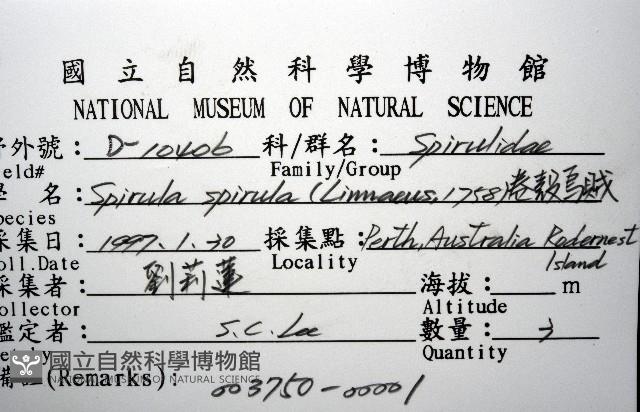 國立自然科學博物館
NATIONAL MUSEUM OF NATURAL SCIENCE
野外號： D-10406 科/群名： Spirulidae
ield# Family/Group
學 名： Spirula spirula (Linnaeus, 1758) 卷殼烏賊
pecies
採集日： 1997. 1. 30 採集點： Perth, Australia Rodernest Island
oll.Date Locality
採集者： 劉莉蓮 海拔： m
ollector Altitude
鑑定者： S. C. Lee 數量： 3
Quantity
國立自然科學博物館
NATIONAL MUSEUM OF NATURAL SCIENCE
(Remarks): 003750-00001